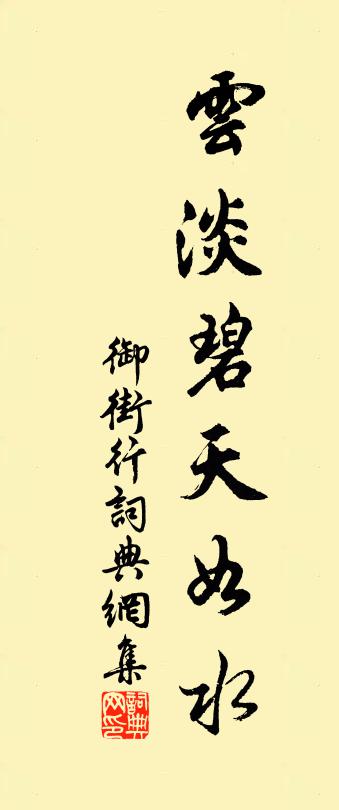 雲淡碧天如水
御街行詞典網集
詞典網印